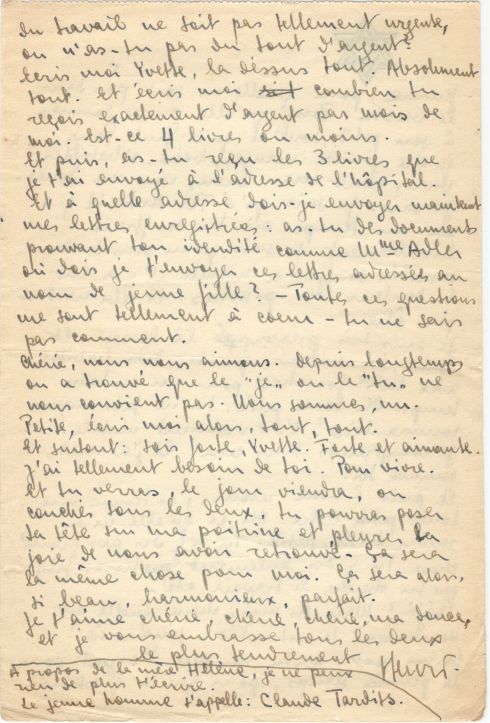 du travail ne soit pas tellement urgente,
ou n'as-tu pas du tout d'argent?
Ecris moi Yvette, la déssus tout. Absolument
tout. Et écris moi combien tu
reçois exactement d'argent par mois de
moi. Est-ce 4 livres ou moins.
Et puis, as-tu reçu les 3 livres que
je t'ai envoyé à l'adresse de l'hôpital.
Et à quelle adresse dois-je envoyer maintenant
mes lettres enregistrées: as-tu des documents
prouvant ton idendité comme Mme Adler
où dois je t'envoyer ces lettres adressées au
nom de jeune fille? - Toutes ces questions
me sont tellement à coeur - tu ne sais
pas comment.
Chérie, nous nous aimons. Depuis longtemps
on a trouvé que le "je" ou le "tu" ne
nous convient pas. Nous sommes, un.
Petite, écris moi alors, tout, tout.
Et surtout: sois forte, Yvette. Forte et aimante.
J'ai tellement besoin de toi. Pour vivre.
Et tu verras, le jour viendra, ou
couchés tous les deux, tu pourras poser
ta tête sur ma poitrine et pleurer la
joie de nous avoir retrouvé. Ça sera
la même chose pour moi. Ça sera alors,
si beau, harmonieux, parfait.
Je t'aime chérie, chérie, chérie, ma douce,
et je vous embrasse tous les deux
le plus tendrement
A propos de la mère Hélène, je ne peux
rien de plus t'écrire.
Le jeune homme s'appelle: Claude Tardits.